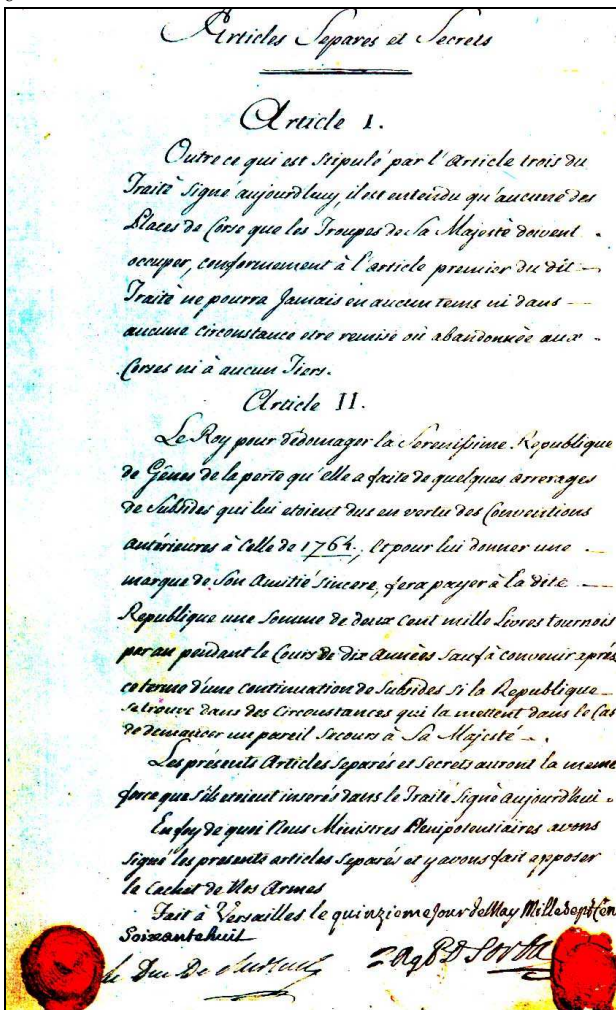 Articles Separés et Secrets
Article I.
Outre ce qui est stipulé par l'Article trois du
Traité signé aujourdhuy, il est entendu qu'aucune des
Places de Corse que les Troupes de Sa Majesté doivent
occuper, conformement à l'article premier du dit
Traité ne pourra Jamais en aucun tems ni dans
aucune Circonstance etre remise où abandonnée aux
Corses ni à aucun Tiers.
Article II.
Le Roy pour dédomager la Serenissime Republique
de Gênes de la perte qu'elle a faite de quelques arrerages
de Subsides qui lui etoient dus en vertu des Conventions
antérieures à Celle de 1764., Et pour lui donner une
marque de Son Amitié sincere, fera payer à la dite
Republique une Somme de deux Cent mille Livres tournois
par an pendant le Cours de dix Années Sauf à convenir après
ce terme d'une Continuation de Subsides Si la Republique
se trouve dans des Circonstances qui la mettent dans le Cas
de demander un pareil Secours à Sa Majesté.
Les présents Articles Separés et Secrets auront la meme
force que s'ils etoient inserés dans le Traité Signé aujourd'hui.
En foy de quoi Nous Ministres Plenipotentiaires avons
signé les presents articles Separés et y avons fait apposer
le Cachet de Nos Armes
Fait à Versailles le quinzieme Jour de May Mille Sept Cen
Soixante huit
le Duc De
Sorba